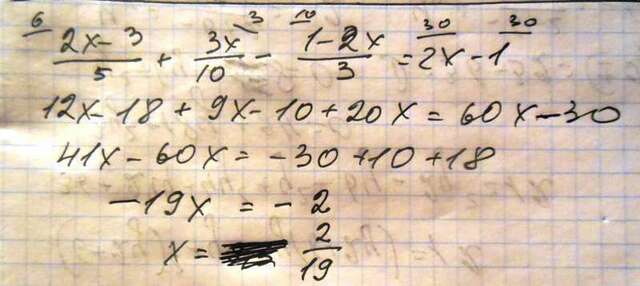 6 (2x-3)/5 + 3 3x/10 - 10 (1-2x)/3 = 30 2x - 30 1
12x-18+9x-10+20x=60x-30
41x-60x=-30+10+18
-19x = -2
x = 2/19